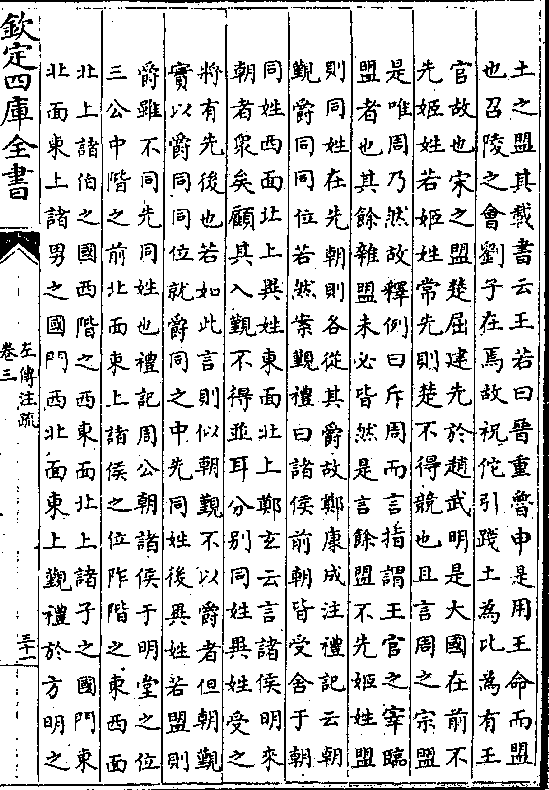 土之盟其載書云王若曰晉重魯申是用王命而盟
也召陵之會劉子在焉故祝佗引踐土為比為有王
官故也宋之盟楚屈建先於趙武明是大國在前不
先姬姓若姬姓常先則楚不得競也且言周之宗盟
是唯周乃然故釋例曰斥周而言指謂王官之宰臨
盟者也其餘雜盟未必皆然是言餘盟不先姬姓盟
則同姓在先朝則各從其爵故鄭康成注禮記云朝
覲爵同同位若然案覲禮曰諸侯前朝皆受舍于朝
同姓西面北上異姓東面北上鄭玄云言諸侯明來
朝者眾矣顧其入覲不得並耳分別同姓異姓受之
將有先後也若如此言則似朝覲不以爵者但朝覲
實以爵同同位就爵同之中先同姓後異姓若盟則
爵雖不同先同姓也禮記周公朝諸侯于明堂之位
三公中階之前北面東上諸侯之位阼階之東西面
北上諸伯之國西階之西東面北上諸子之國門東
北面東上諸男之國門西北面東上覲禮於方明之
欽定四庫全書
左傳注疏
卷三
三十一